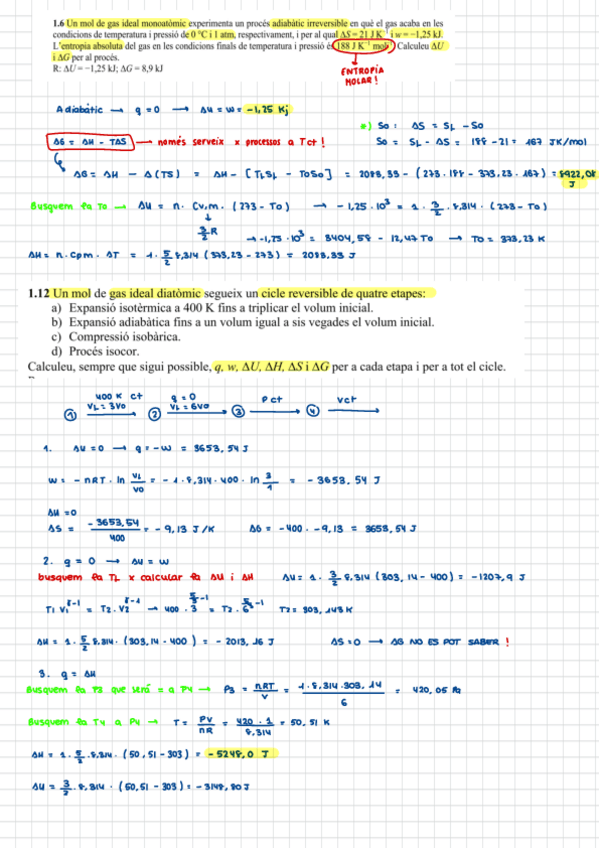 1.6 Un mol de gas ideal monoatòmic experimenta un procés adiabàtic irreversible en què el gas acaba en les
condicions de temperatura i pressió de 0 °C i 1 atm, respectivament, i per al qual ΔS = 21 J K⁻¹ i w = −1,25 kJ.
L'entropia absoluta del gas en les condicions finals de temperatura i pressió és 188 J K⁻¹ mol⁻¹. Calculeu ΔU
i ΔG per al procés.
R: ΔU = −1,25 kJ; ΔG = 8,9 kJ
ENTROPÍA
MOLAR!
Adiabàtic → q=0 → ΔU = W = -1,25 Kj
*) So: ΔS = SL - So
ΔG = ΔH - TΔS → només serveix x processos a Tct!
So = SL - ΔS = 188 - 21 = 167 JK/mol
ΔG = ΔH - Δ(TS) = ΔH - [TLSL - ToSo] = 2088,33 - (273·188 - 373,23·167) = 8922,08
J
Busquem la To → ΔU = n·Cv,m·(273 - To) → -1,25·10³ = 1·3/2·8,314·(273-To)
3/2R
→ -1,25·10³ = 3404,58 - 12,47 To → To = 373,23 K
ΔH = n·Cpm·ΔT = 1·5/2 8,314 (373,23 - 273) = 2083,33 J
1.12 Un mol de gas ideal diatòmic segueix un cicle reversible de quatre etapes:
a) Expansió isotèrmica a 400 K fins a triplicar el volum inicial.
b) Expansió adiabàtica fins a un volum igual a sis vegades el volum inicial.
c) Compressió isobàrica.
d) Procés isocor.
Calculeu, sempre que sigui possible, q, w, ΔU, ΔH, ΔS i ΔG per a cada etapa i per a tot el cicle.
400 K ct q=0 Pct Vct
VL=3Vo VL=6Vo
① → ② → ③ → ④ →
1. ΔU=0 → q=-W = 3653,54 J
W = -nRT·ln VL/Vo = -1·8,314·400·ln 3/1 = -3653,54 J
ΔH=0
ΔS = -3653,54/400 = -9,13 J/K ΔG = -400·-9,13 = 3653,54 J
2. q=0 → ΔU = W
busquem la TL x calcular la ΔU i ΔH ΔU = 1·3/2 8,314 (303,14 - 400) = -1207,9 J
T1 V1^γ-1 = T2·V2^γ-1 → 400·3^5/3-1 = T2·6^5/3-1 T2 = 303,143 K
ΔH = 1·5/2 8,314·(303,14·400) = -2013,16 J ΔS=0 → ΔG NO ES POT SABER!
3. q = ΔH
Busquem la P3 que serà = a P4 → P3 = nRT/V = 1·8,314·303,14/6 = 420,05 Pa
Busquem la T4 a P4 → T = PV/nR = 420·1/8,314 = 50,51 K
ΔH = 1·5/2·8,314·(50,51 - 303) = -5248,0 J
ΔU = 3/2·8,314·(50,51 - 303) = -3148,80 J